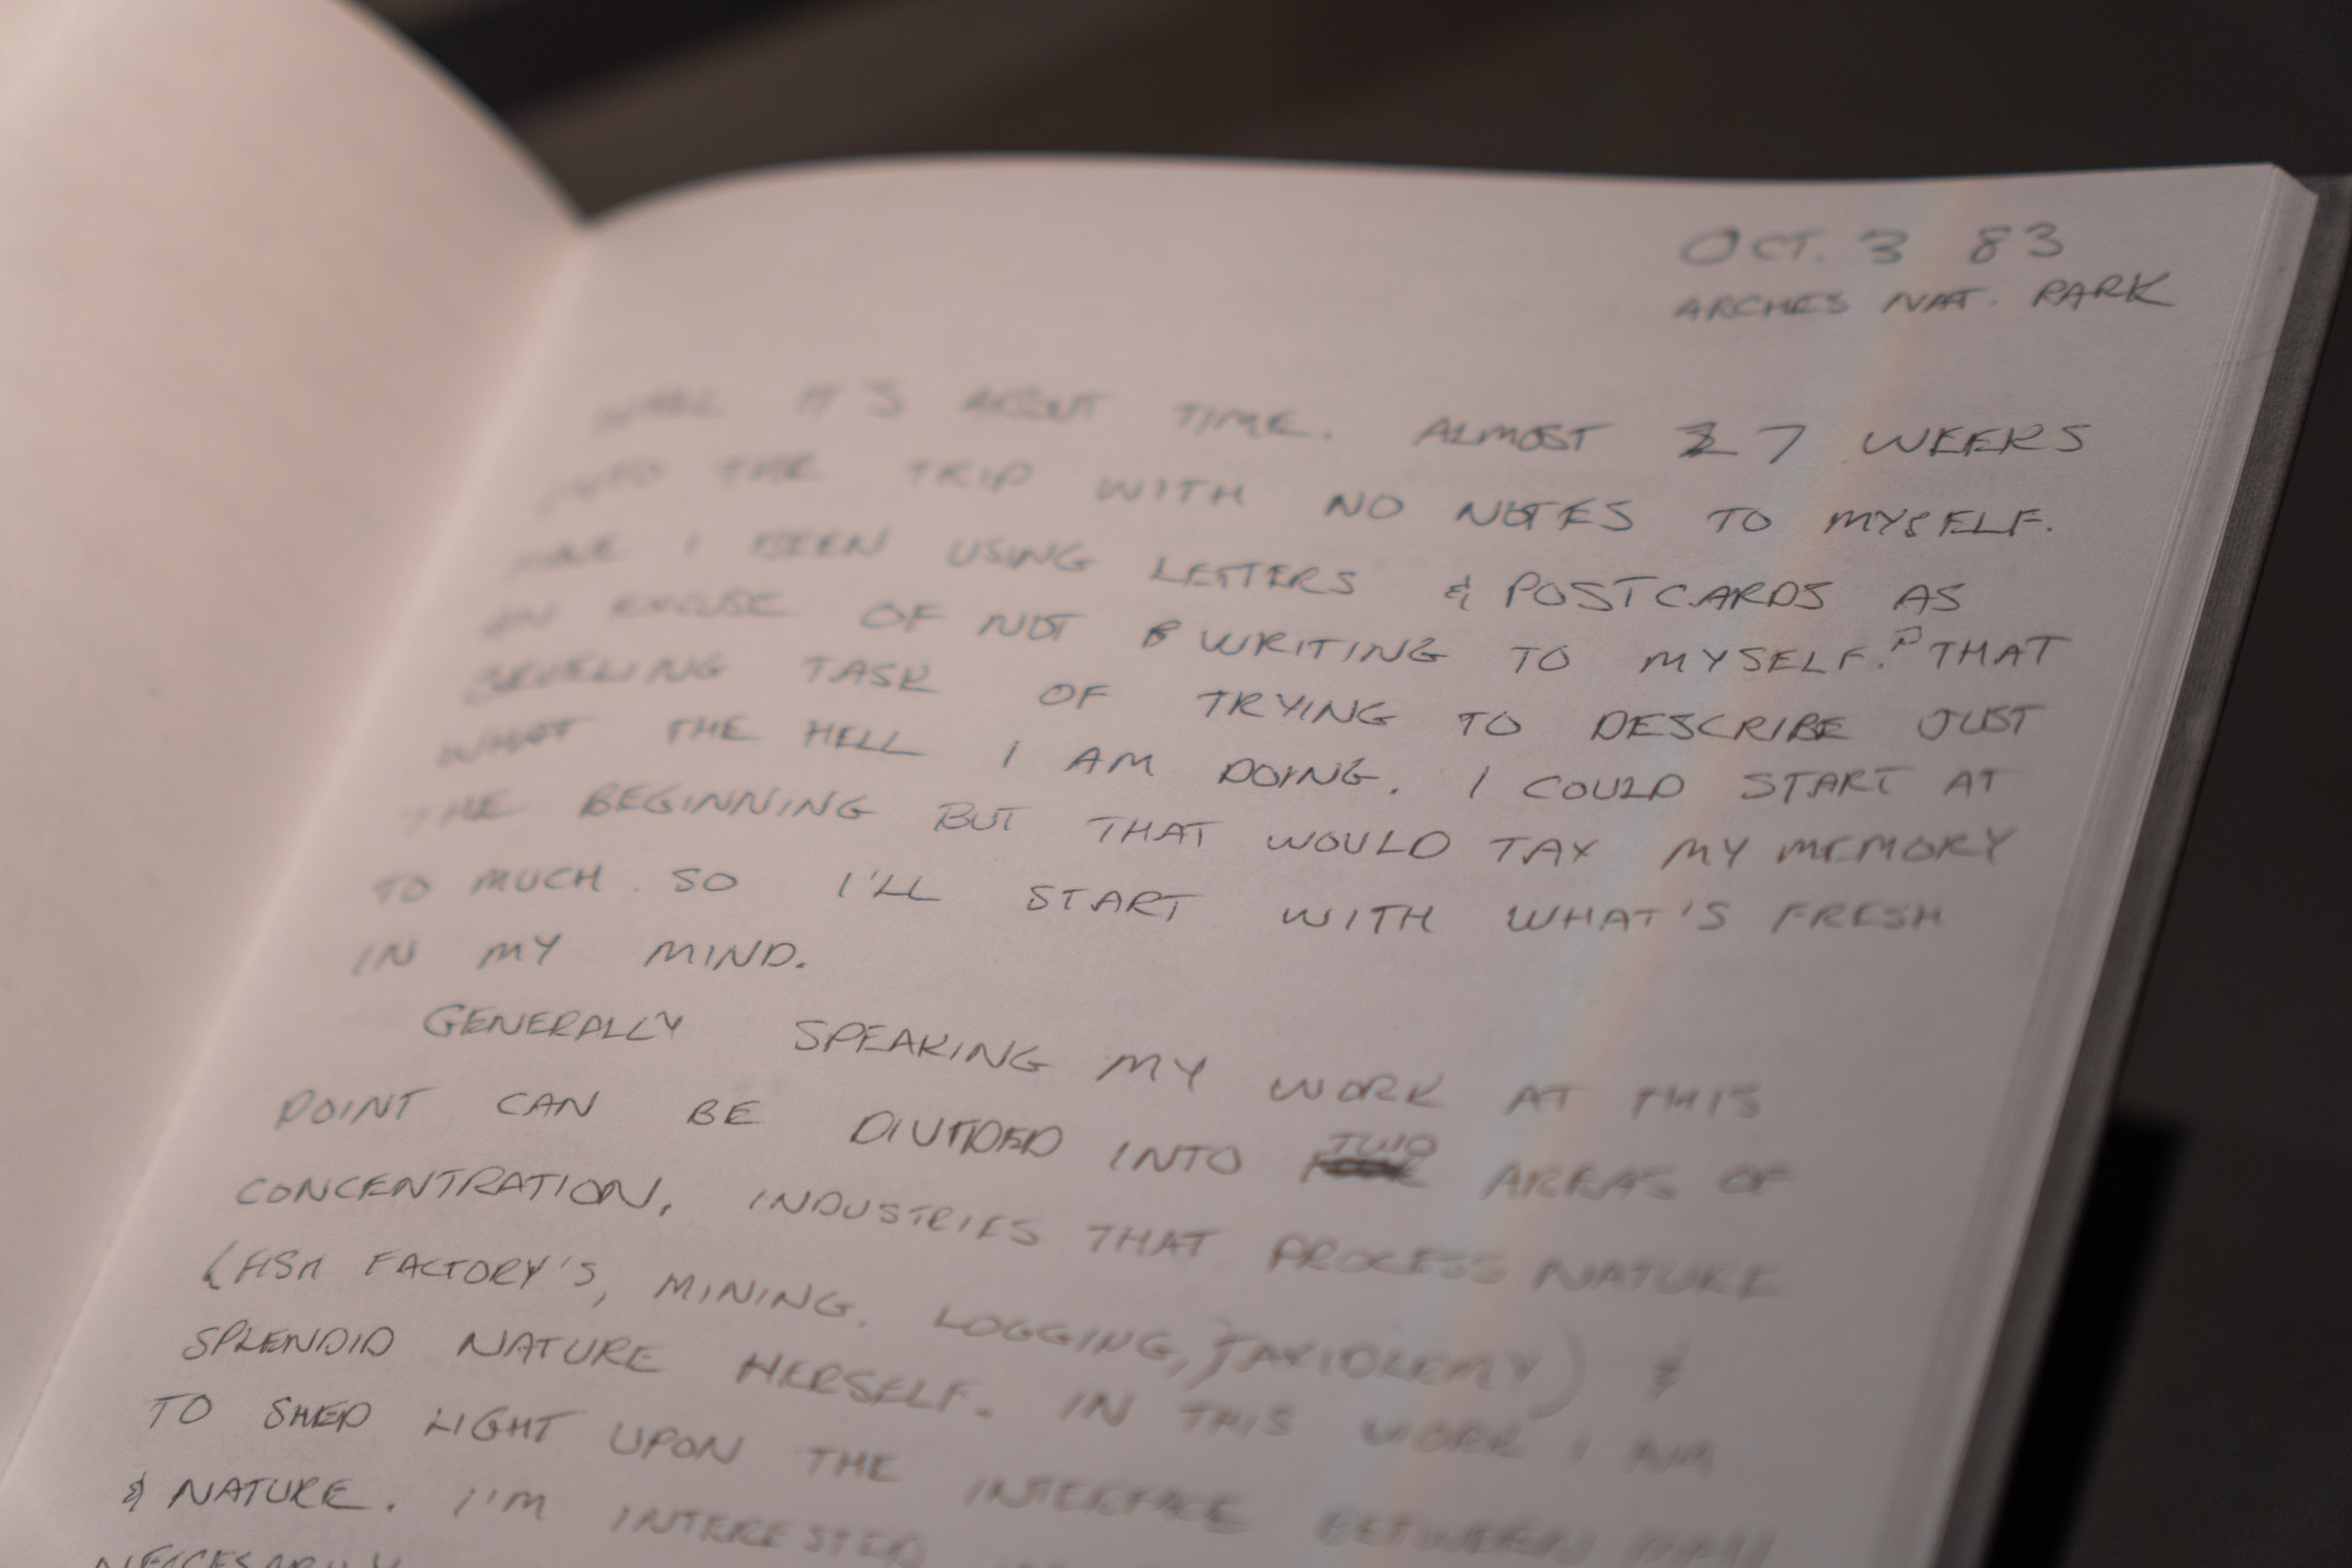 OCT. 3 83
ARCHES NAT. PARK
WELL IT'S ABOUT TIME. ALMOST 27 WEEKS
INTO THE TRIP WITH NO NOTES TO MYSELF.
HAVE I BEEN USING LETTERS & POSTCARDS AS
AN EXCUSE OF NOT WRITING TO MYSELF.? THAT
GRUELING TASK OF TRYING TO DESCRIBE JUST
WHAT THE HELL I AM DOING. I COULD START AT
THE BEGINNING BUT THAT WOULD TAX MY MEMORY
TO MUCH. SO I'LL START WITH WHAT'S FRESH
IN MY MIND.
GENERALLY SPEAKING MY WORK AT THIS
POINT CAN BE DIVIDED INTO TWO AREAS OF
CONCENTRATION, INDUSTRIES THAT PROCESS NATURE
(FISH FACTORY'S, MINING, LOGGING, TAXIDERMY) &
SPLENDID NATURE HERSELF. IN THIS WORK I AM
TO SHED LIGHT UPON THE INTERFACE BETWEEN MAN
& NATURE. I'M INTERESTED
NECCESARILY